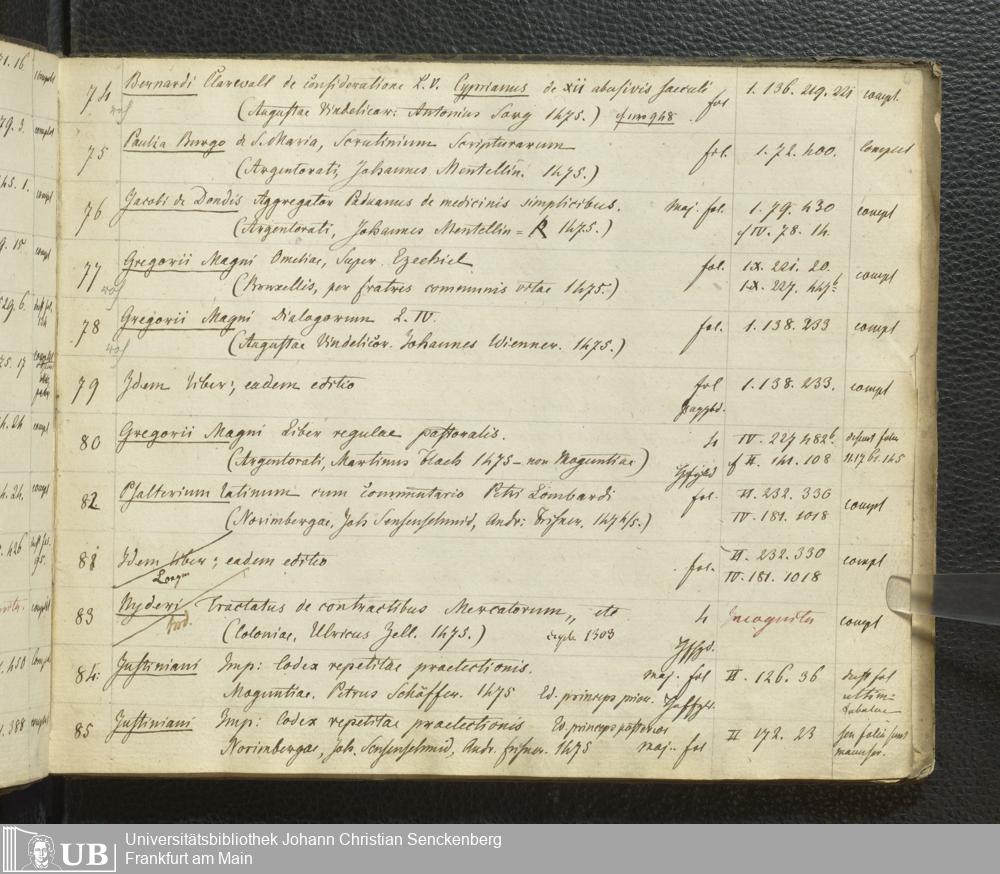 74 Bernardi Clarevall de Consideratione L.V. Cyprianus de xii abusivis saeculi fol 1. 136. 219. 221 compl.
(Augustae Vindelicor: Antonius Sorg 1475.) cf uro 948.
75 Pauli a Burgo de S. Maria, Scrutinium Scripturarum fol. 1. 72. 400. Complet
(Argentorati, Johannes Mentellin. 1475.)
76 Jacobi de Dondis Aggregator Paduanus de medicinis simplicibus. maj. fol. 1. 79. 430 compl
(Argentorati, Johannes Mentellin = R 1475.) cf IV. 78. 14.
77 Gregorii Magni Omeliae, Super Ezechiel fol. IX. 221. 20. compl
(Bruxellis, per fratres communis vitae 1475.) IX. 227. 447b.
78 Gregorii Magni Dialogorum L. IV. fol. 1. 138. 233 compl
(Augustae Vindelicor. Johannes Wienner. 1475.)
79 Idem liber; eadem editio fol 1. 138. 233. compl
80 Gregorii Magni Liber regulae pastoralis. 4 IV. 227 482b. desunt folia
(Argentorati, Martinus Flach 1475 – non Moguntiae) cf II. 141. 108 11. 17 61. 145
82 Psalterium latinum cum Commentario Petri Lombardi fol. II. 232. 330 compl
(Norimbergae, Joh: Sensenschmid, Andr: Frisner. 1474/5.) IV. 181. 1018
81 Idem liber; eadem editio fol. II. 232. 330 compl
IV. 181. 1018
83 Nyderi Tractatus de contractibus Mercatorum, etc 4 Incognitus compl
(Coloniae, Ulricus Zell. 1475.) 1303
84. Justiniani Imp: Codex repetitae praelectionis. maj. fol II. 126. 36 deest fol
Moguntiae. Petrus Schöffer. 1475 Ed. princeps prior. ultim=
tabulae
85 Justiniani Imp: Codex repetitae praelectionis Ed. princeps posterior II 172. 23 sex folia sunt
Norimbergae, Joh. Sensenschmid, Andr. Frisner. 1475 maj. fol manuscr.
UB Universitätsbibliothek Johann Christian Senckenberg
Frankfurt am Main